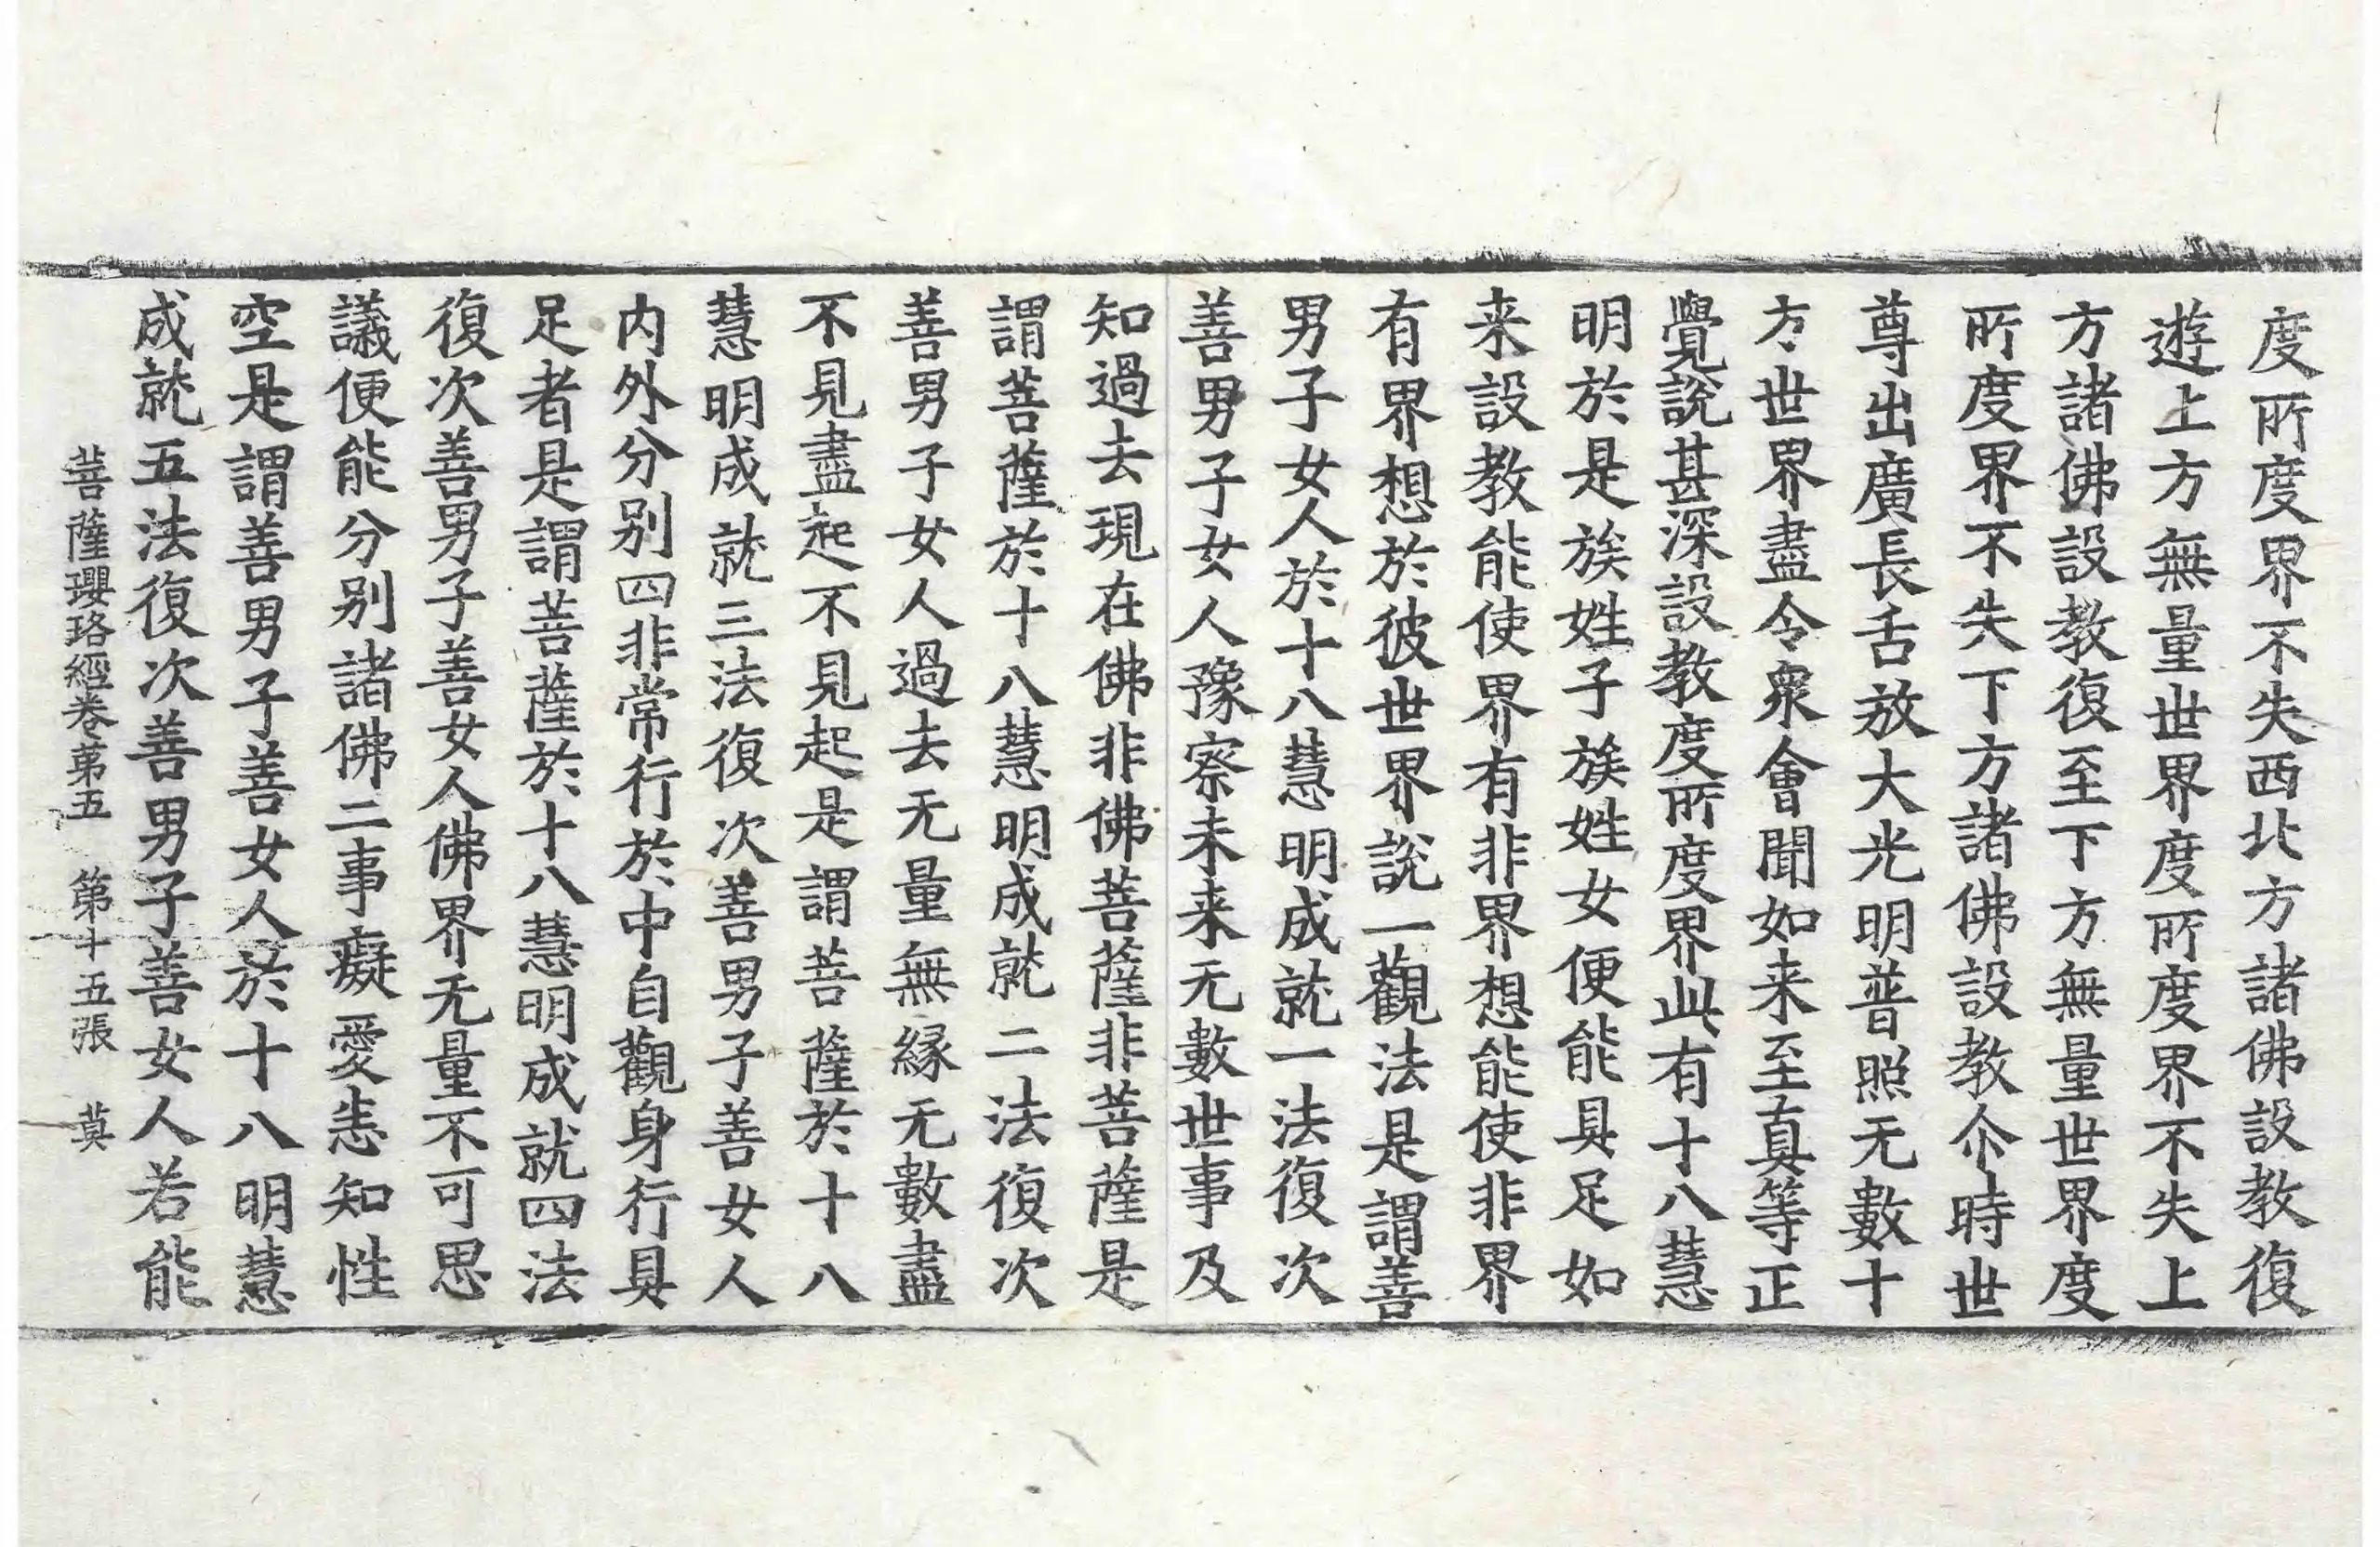 度所度界不失西北方諸佛設教復
遊上方無量世界度所度界不失上
方諸佛設教復至下方無量世界度
所度界不失下方諸佛設教尒時世
尊出廣長舌放大光明普照无數十
方世界盡令衆會聞如来至真等正
覺說甚深設教度所度界此有十八慧
明於是族姓子族姓女便能具足如
来設教能使界有非界想能使非界
有界想於彼世界說一觀法是謂善
男子女人於十八慧明成就一法復次
善男子女人豫察未来无數世事及
知過去現在佛非佛菩薩非菩薩是
謂菩薩於十八慧明成就二法復次
善男子女人過去无量無縁无數盡
不見盡起不見起是謂菩薩於十八
慧明成就三法復次善男子善女人
内外分别四非常行於中自觀身行具
足者是謂菩薩於十八慧明成就四法
復次善男子善女人佛界无量不可思
議便能分别諸佛二事癡愛恚知性
空是謂善男子善女人於十八明慧
成就五法復次善男子善女人若能
菩薩瓔珞經卷苐五　第十五張　莫